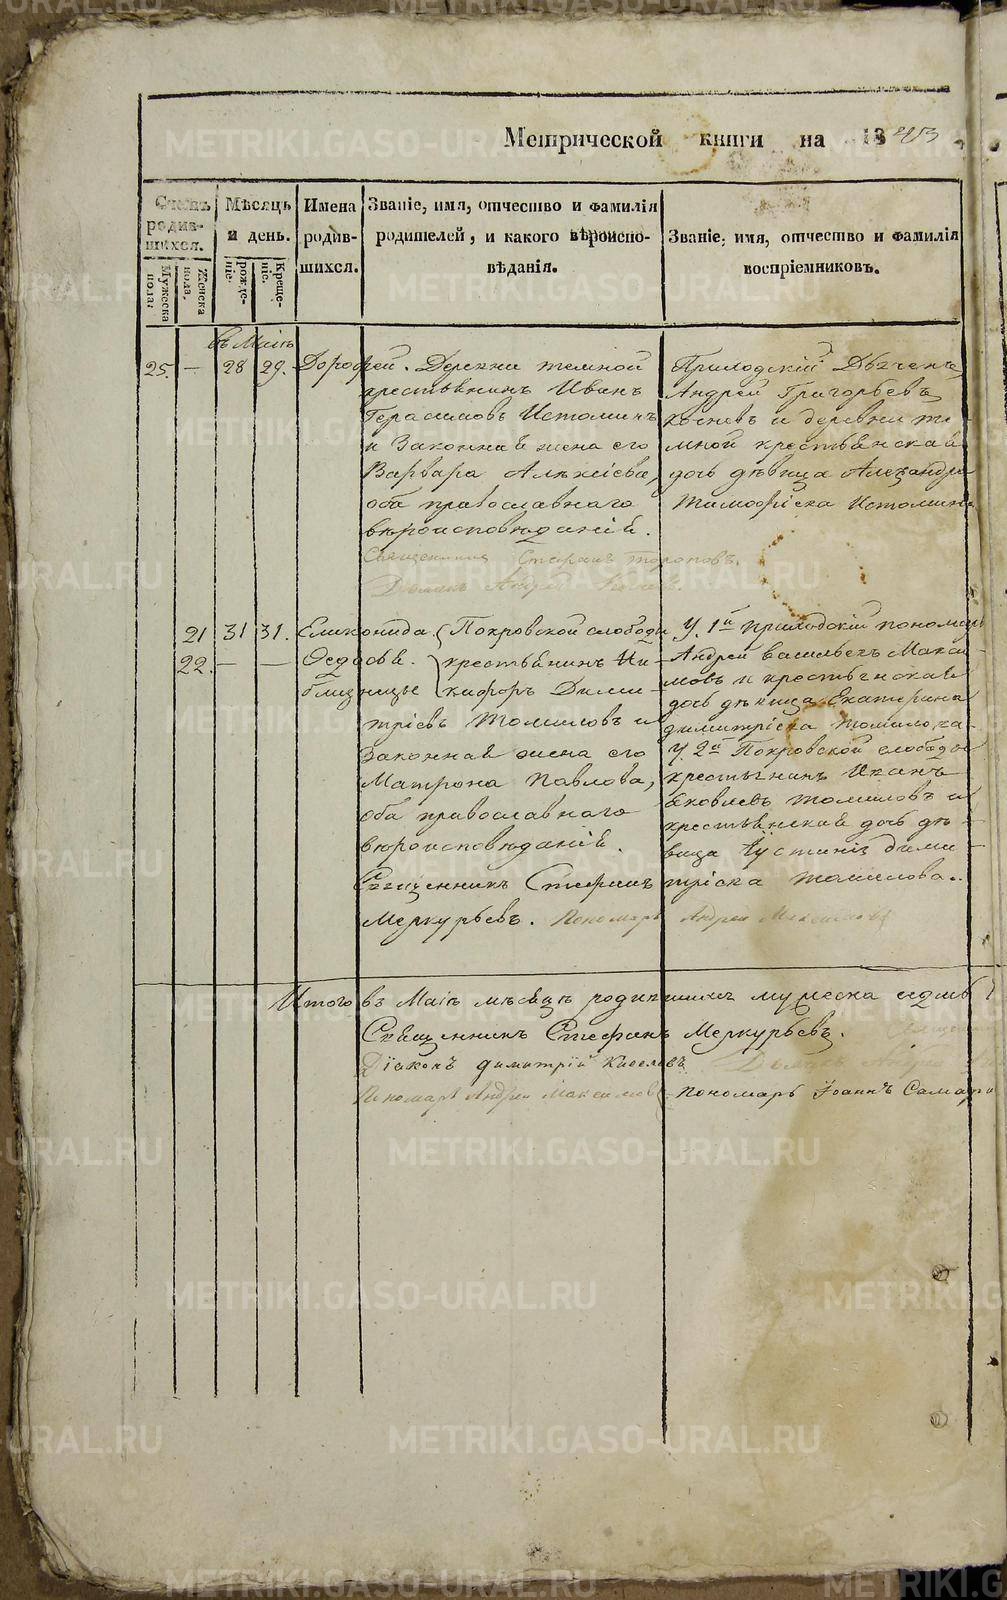 Метрической книги на 1843
Счетъ родив-шихся.
Мужеска пола.
Женска пола.
Мѣсяцъ и день.
рожде-ніе.
Креще-ніе.
Имена родив-шихся.
Званіе, имя, отчество и фамилія родителей, и какого вѣроиспо-вѣданія.
Званіе, имя, отчество и фамилія воспріемниковъ.
въ Маіѣ
25. — 28 29. Дорофей.
Деревни темной
крестьянинъ Иванъ
Герасимовъ Истоминъ
и Законная жена его
Варвара Алексіева,
оба православнаго
вѣроисповѣданій.
Священникъ Стефанъ Тороповъ.
Дьячекъ Андрей
Приходскій Дьячекъ
Андрей Григорьевъ
и деревни те-
мной крестьянская
дочь дѣвица Александра
Тимофіева Истомина
21 31 31. Еликонида.
22. — — Федосья.
близницы
Покровской слободы
крестьянинъ Ни-
кифоръ Дими-
тріевъ Томиловъ и
Законная жена его
Матрона Павлова,
оба православнаго
вѣроисповѣданій.
Священникъ Стефанъ
Меркурьевъ. Пономарь Андрей Максимовъ
У 1й приходскій пономарь
Андрей Васильевъ Макси-
мовъ и крестьянская
дочь дѣвица Екатерина
димитріева Томилова
У 2й Покровской слободы
крестьянинъ Иванъ
Яковлевъ Томиловъ и
крестьянская дочь дѣ-
вица Іустинія дими-
тріева Томилова.
Итого въ Маіѣ мѣсяцѣ родившихся мужеска седмь
Священникъ Стефанъ Меркурьевъ.
Діаконъ димитрій Киселевъ
Пономарь Андрей Максимовъ
пономарь Іоаннъ
METRIKI.GASO-URAL.RU